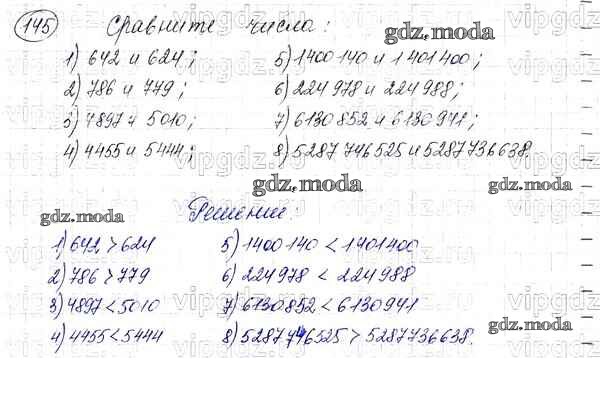 145 Сравните числа:
1) 642 и 624; 5) 1400 140 и 1 401 400;
2) 786 и 779; 6) 224 978 и 224 988;
3) 4897 и 5010; 7) 6130 852 и 6130 941;
4) 4455 и 5444; 8) 5287 746525 и 5287736638.
gdz.moda
gdz.moda
gdz.moda
Решение:
gdz.moda
1) 642 > 624 5) 1400 140 < 1401400
2) 786 > 779 6) 224 978 < 224 988
3) 4897 < 5010 7) 6130852 < 6130 941
gdz.moda
4) 4455 < 5444 8) 5287746525 > 5287736638.